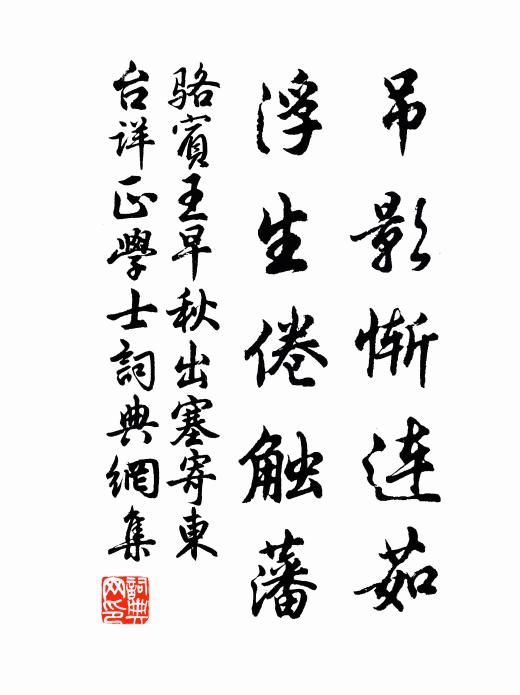 吊影惭连茹
浮生倦触藩
骆賓王早秋出塞寄東
台详正學士詞典網集
詞典网印